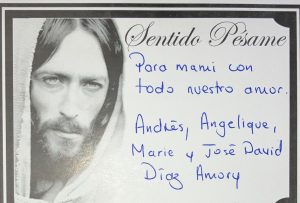 Sentido Pésame
Para mami con
todo nuestro amor.
Andrés, Angelique,
Marie y José David
Díaz Amory